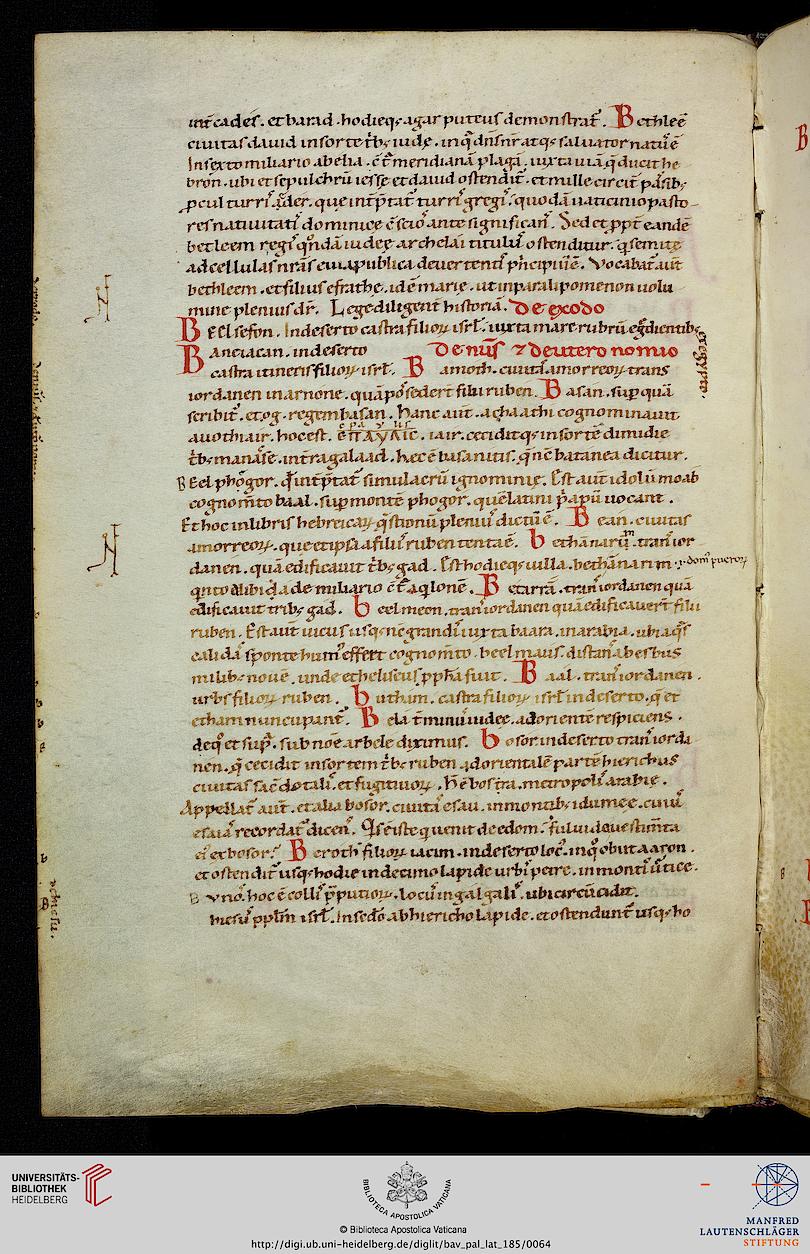 int cades . et barad . hodieq; agar puteus demonstrat̄ . Bethleē
ciuitas dauid in sorte tb; iudę . in q̄ dn̄s nr̄ atq; saluator natuſ ē
In sexto miliario ab elia . ct̄ meridianā plagā . iuxta uiā q̄ ducit he
bron . ubi et sepulchrū iesse et dauid ostendit̄ . et mille circit̄ paſsib;
ꝓcul turriſ ader . que int̄p̄tat̄ turriſ gregiſ . quodā uaticinio pasto
res natiuitatiſ dominicę ↄscioſ ante significanſ . Sed et ꝓpt̄ eandē
betleem regiſ qͦndā iudeę archelai tituluſ ostenditur . q semitę
ad cellulas nr̄as e uia publica deuertentiſ p̄ncipiū ē . Vocabat̄ aut̄
bethleem . et filius efrathę . id ē marię . ut in paralipomenon uolu
mine plenius dr̄ . Lege diligent̄ historiā . De exodo
BEel sefon . In deserto castra filioꝝ isrl̄ . iuxta mare rubrū egdientib;
ex egypto .
Baneiacan . in deserto De nūſ ⁊ deuteronomio
castra itineris filioꝝ isrl̄ . Bamoth . ciuitaſ amorreoꝝ trans
iordanen in arnone . quā poſsederr̄ filii ruben . Basan . sup quā
scribit̄ . et og . regem basan . Hanc aut̄ . achaathi cognominauit
auothiair . hoc est . ΕΠΑΥΛΙC . iair . ceciditq; in sortē dimidię
tb; manaſse . in t̄ra galaad . hęc ē basanitis . q̄ nc̄ batanea dicitur .
BEel phogor . qͦ int̄p̄tat̄ simulacrū ignominię . Est aut̄ idolū moab
cognom̄to baal . sup montē phogor . quē latini p̄apū uocant .
Et hoc in libris hebreicaꝝ q̄stionū pleniuſ dictū ē . Bean . ciuitas
amorreoꝝ . que et ipsa a filiiſ ruben tenta ē . bethānarā . tranſ ior
danen . quā edificauit tb; gad . Est hodieq; uilla . bethānarim .
.i. dom pueroꝝ
qͥnto a libiada miliario ct̄ aqlonē . Betarrā . tranſ iordanen quā
edificauit tribꝰ gad . beelmeon . tranſ iordanen quā edificauert̄ filii
ruben . Est aut̄ uicus usq; nc̄ grandiſ iuxta baara . in arabia . ubi aq̄s
calidaſ sponte humuſ effert cognom̄to . beelmaus . distanſ ab esbus
milib; nouē . unde et heliseus ꝓpha fuit . Baal . tranſ iordanen .
urbs filioꝝ ruben . butham . castra filioꝝ isrl̄ in deserto . q̄ et
etham nuncupant̄ . Bela t̄minuſ iudeę . ad oriente respiciens .
de qͦ et sup . sub noe arbele diximus . bosor in deserto tranſ iorda
nen . q̄ cecidit in sortem tb; ruben ad orientalē partē hierichus
ciuitas sac̄dotaliſ . et fugitiuoꝝ . Hę ē bostra . metropoliſ arabię .
Appellat̄ aut̄ . et alia bosor . ciuitaſ esau . in montib; idumeę . cuiuſ
esaiaſ recordat̄ dicenſ . Qis ē iste q uenit de edom . fuluida uestim̄ta
eiꝰ et bosor . Beroth filioꝝ iacim . in deserto locꝰ . in qͦ obiit aaron .
et ostendit̄ usq; hodie in decimo lapide urbiſ petrę . in montiſ uertice .
Buno . hoc ē colliſ p̄putioꝝ . locuſ in galgaliſ . ubi circūcidit .
hiesuſ pp̄lm isrl̄ . In sedo ab hiericho lapide . et ostendunt̄ usq; ho
UNIVERSITÄTS-
BIBLIOTHEK
HEIDELBERG
BIBLIOTECA APOSTOLICA VATICANA
© Biblioteca Apostolica Vaticana
http://digi.ub.uni-heidelberg.de/diglit/bav_pal_lat_185/0064
MANFRED
LAUTENSCHLÄGER
STIFTUNG